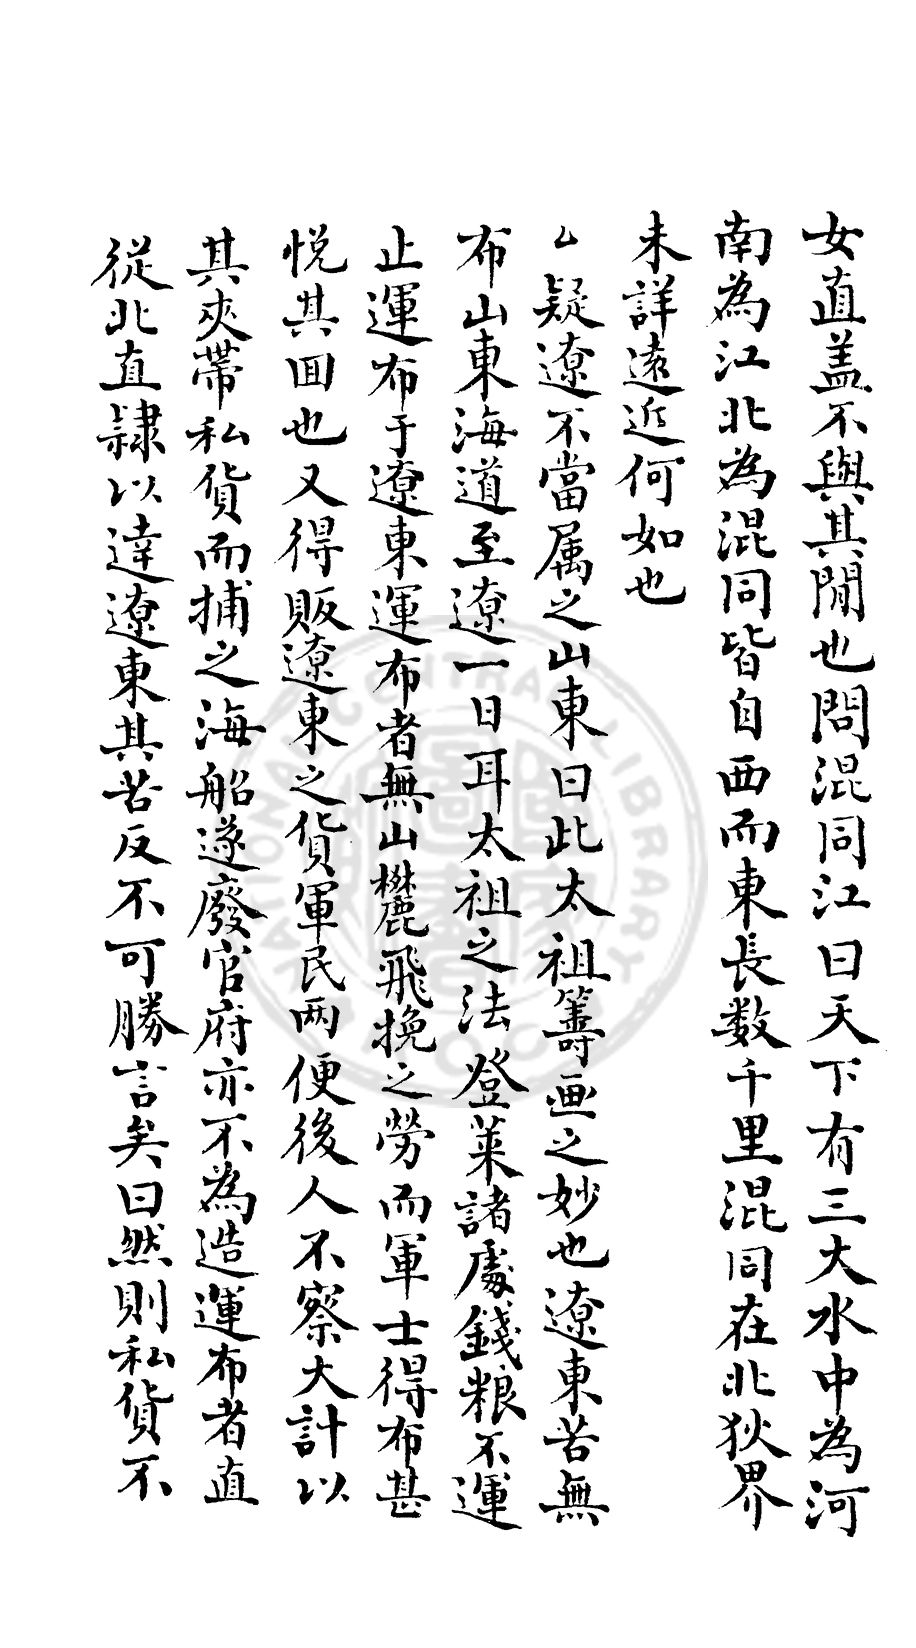 女直盖不與其間也問混同江曰天下有三大水中為河
南為江北為混同皆自西而東長数千里混同在北狄界
未詳遠近何如也
疑遼不當属之山東曰此太祖籌画之妙也遼東苦無
布山東海道至遼一日耳太祖之法登莱諸處錢粮不運
止運布于遼東運布者無山麓飛挽之勞而軍士得布甚
悦其囬也又得販遼東之貨軍民两便後人不察大計以
其夾帶私貨而捕之海船遂廢官府亦不為造運布者直
從北直隸以達遼東其苦反不可勝言矣曰然則私貨不
NATIONAL CENTRAL LIBRARY